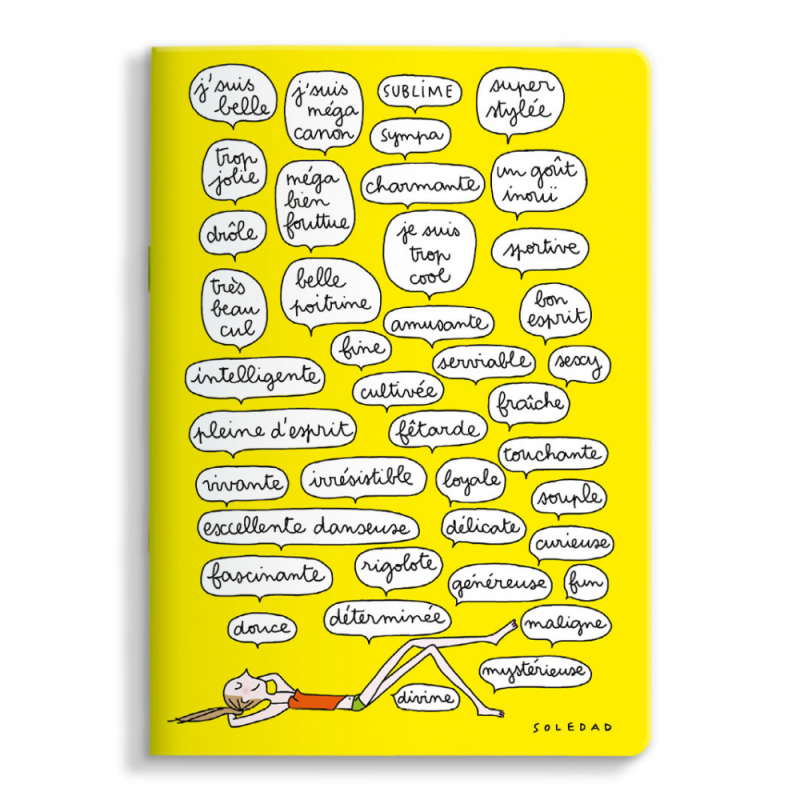 j'suis
belle
j'suis
méga
canon
SUBLIME
super
stylée
sympa
trop
jolie
méga
bien
fouttue
charmante
un goût
inouï
drôle
je suis
trop
cool
sportive
très
beau
cul
belle
poitrine
bon
esprit
amusante
fine
serviable
sexy
intelligente
cultivée
fraîche
pleine d'esprit
fêtarde
touchante
vivante
irrésistible
loyale
souple
excellente danseuse
délicate
curieuse
fascinante
rigolote
généreuse
fun
douce
déterminée
maligne
mystérieuse
divine
SOLEDAD